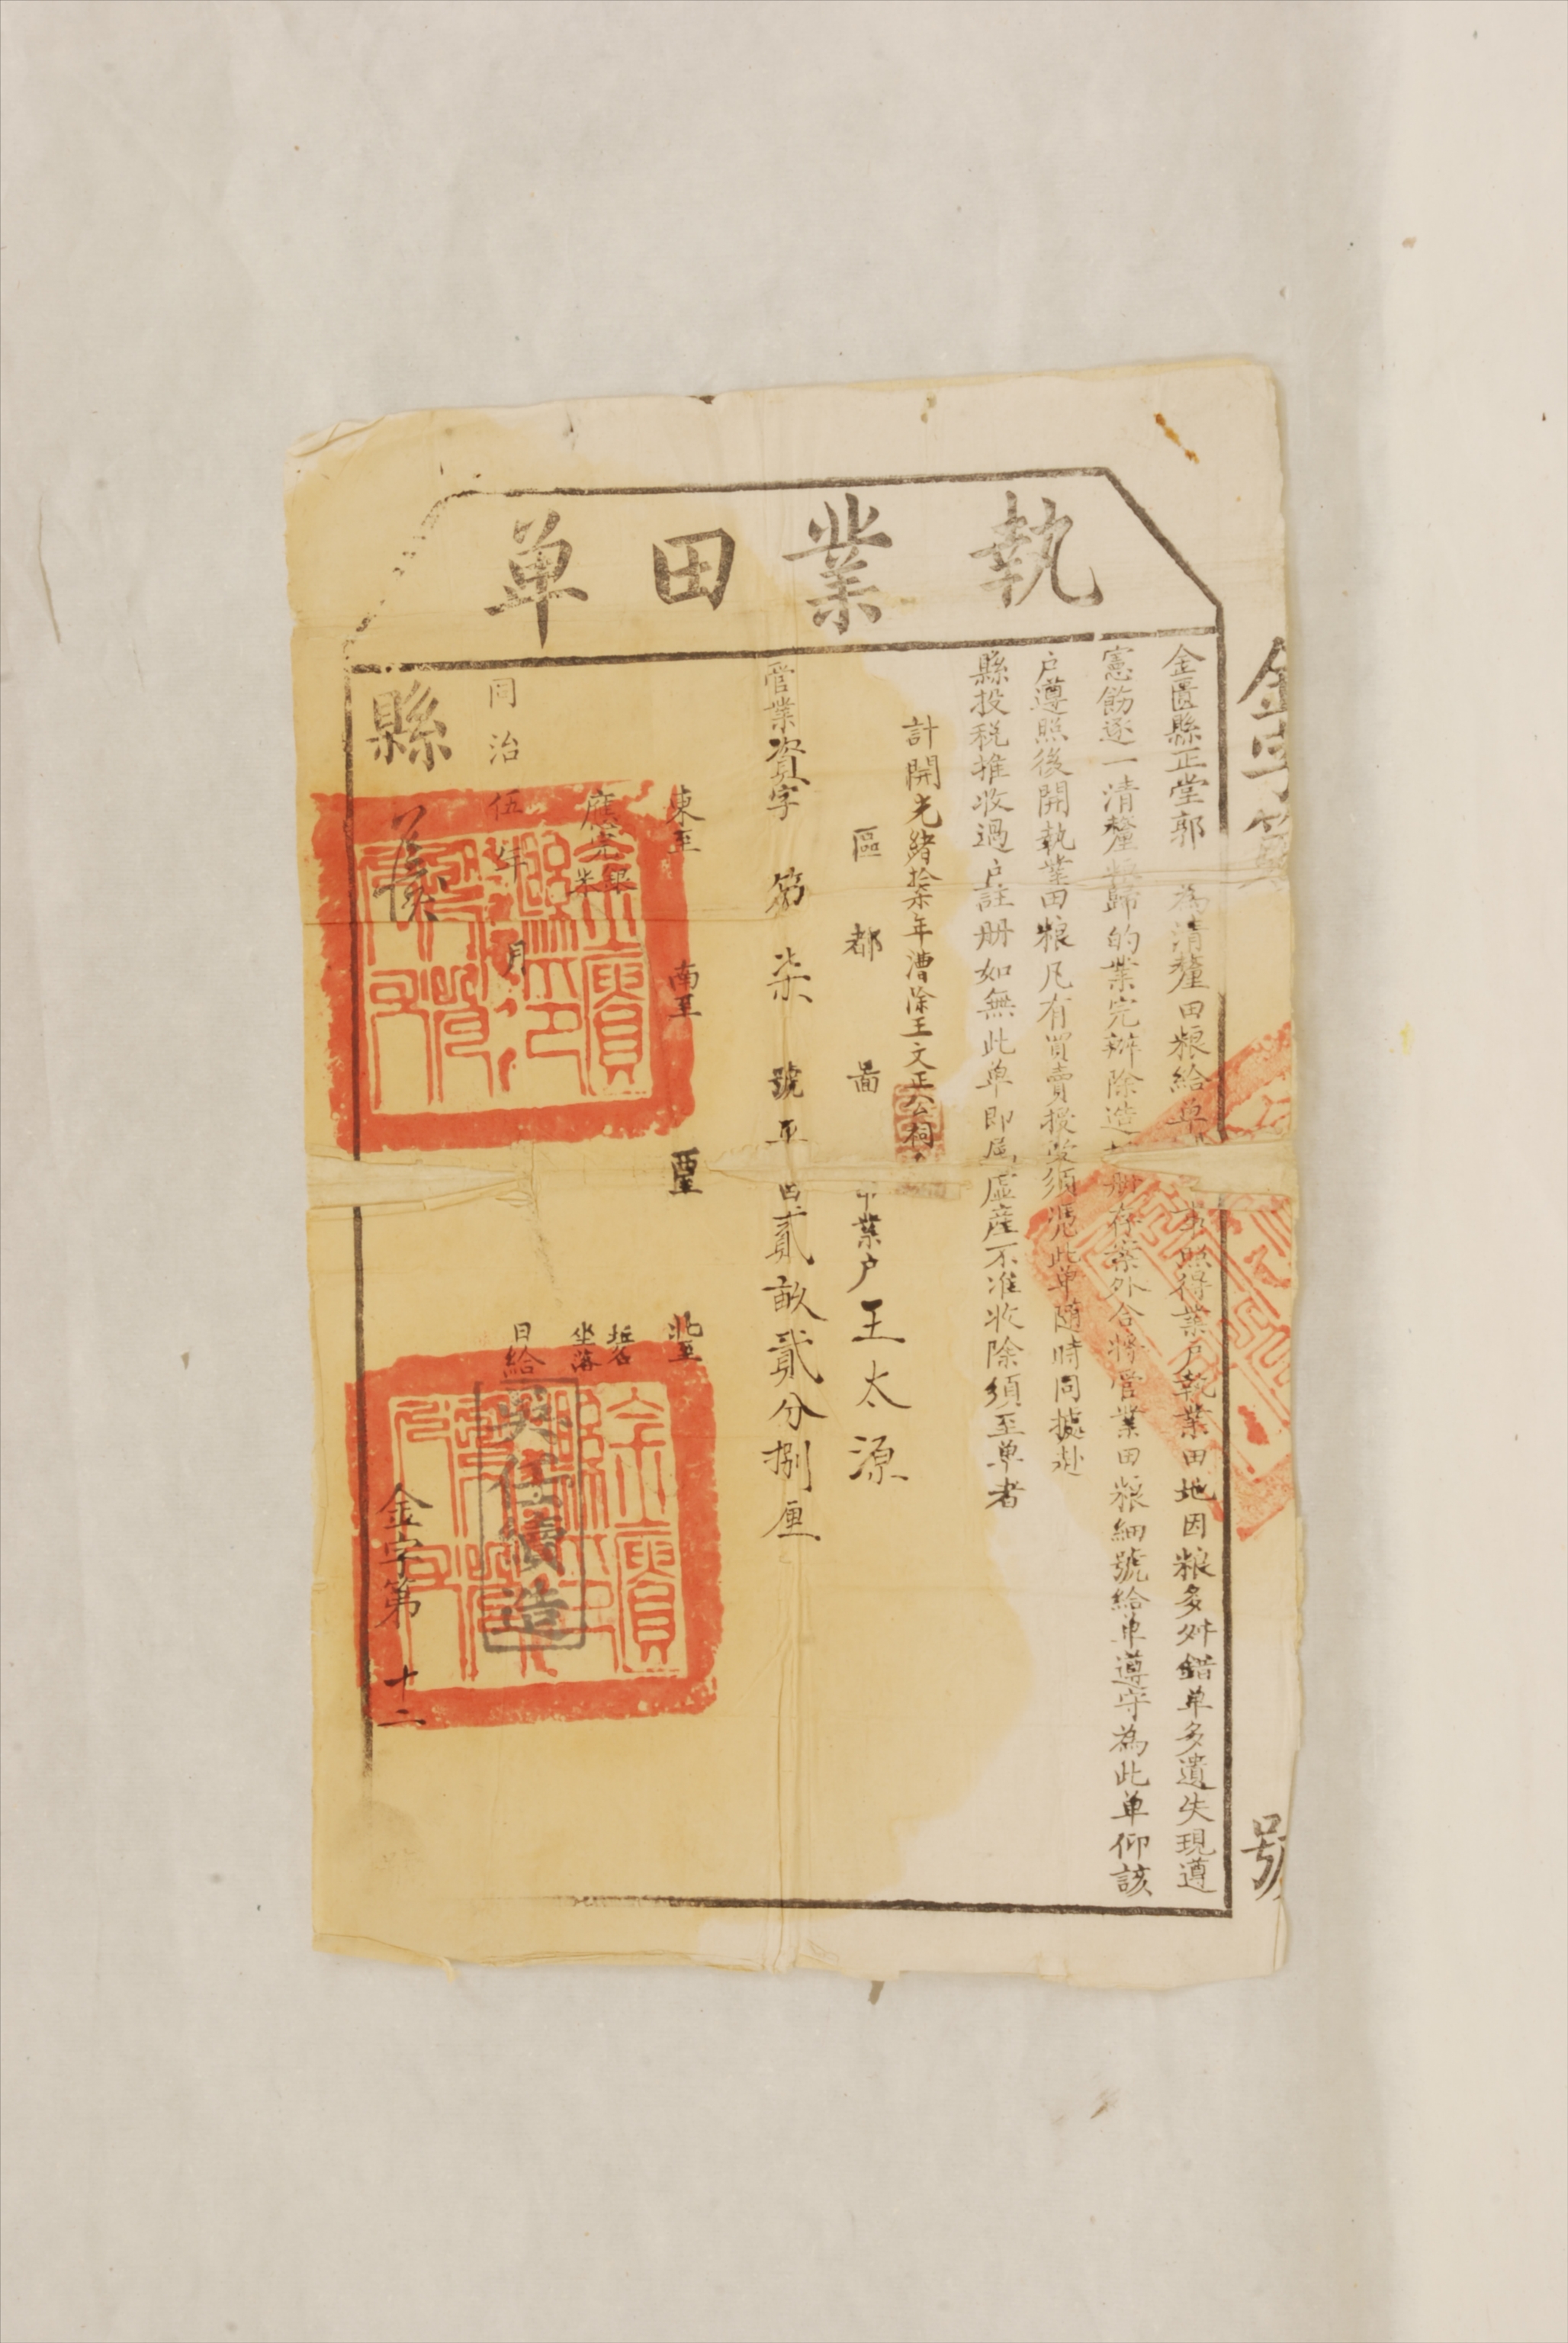 執業田单
金匱縣正堂郭 為清釐田粮給单 照得業户執業田地因粮多舛錯单多遺失現遵
憲飭逐一清釐粮歸的業完辦除造 册存案外合將管業田粮細號給单遵守為此单仰該
户遵照後開執業田粮凡有買賣授受須凭此单隨時同據赴
縣投税推收過户註册如無此单即屬虚産不准收除須至单者
計開光緒拾柒年漕除王文正公祠
區 都 啚 業户王太源
管業資字 第柒號平田貳畝貳分捌厘
東至 南至 西至 北至
應完銀米 坵名坐落
同治伍年 月 日給
吳任續造
縣
金字第 十二
金字第 號